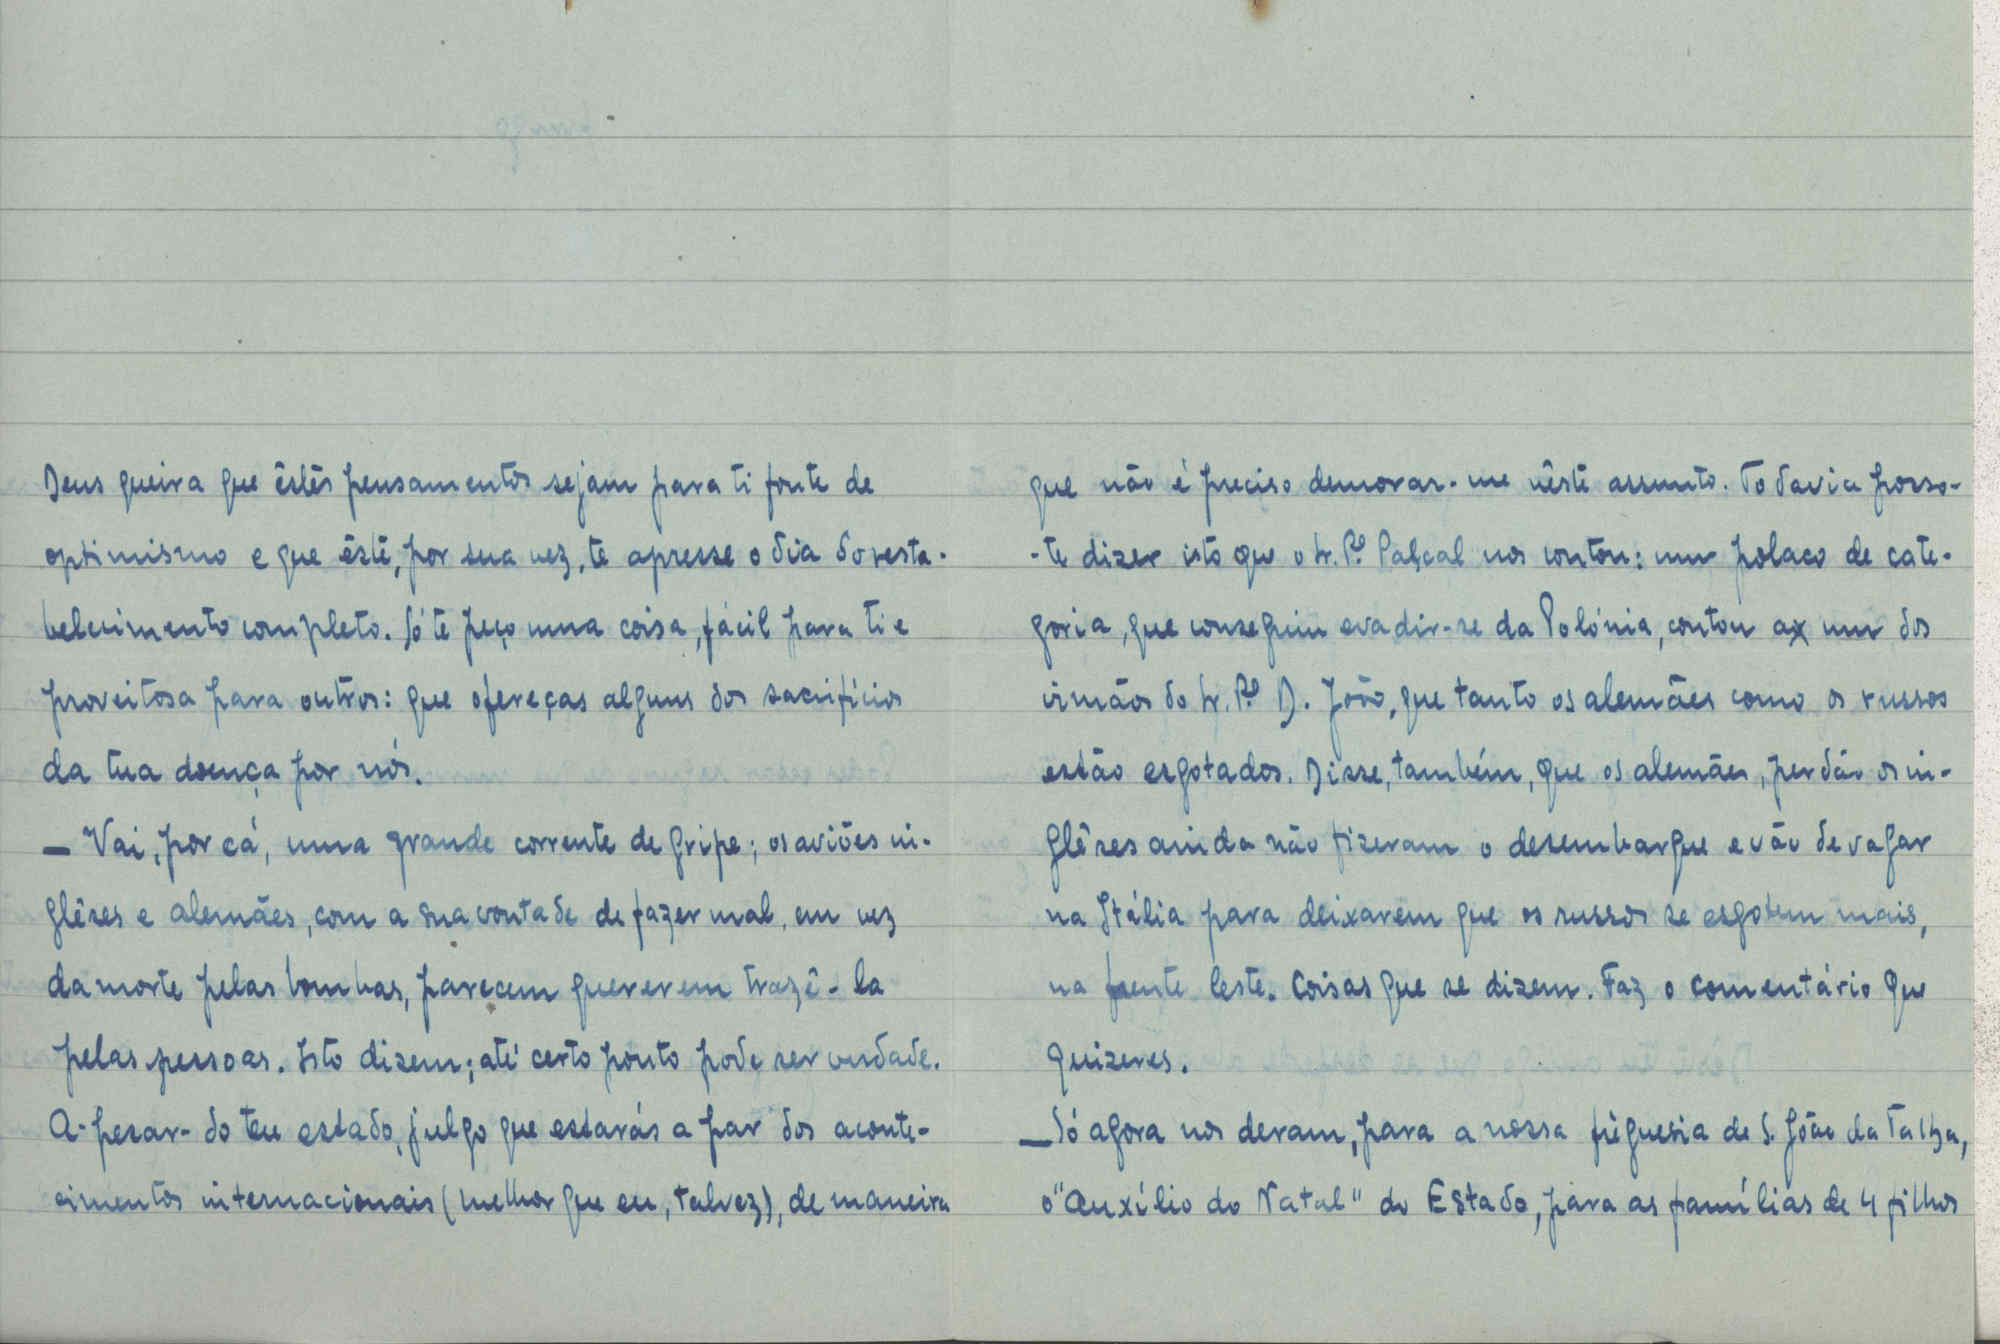 Deus queira que êstes pensamentos sejam para ti fonte de
optimismo e que êste, por sua vez, te apresse o dia do resta-
belecimento completo. Só te peço uma coisa, fácil para ti e
proveitosa para outros: que ofereças alguns dos sacrifícios
da tua doença por nós.
— Vai, por cá, uma grande corrente de gripe; os aviões in-
glêses e alemães, com a sua vontade de fazer mal, em vez
da morte pelas bombas, parecem quererem trazê-la
pelas pessoas. Isto dizem; até certo ponto pode ser verdade.
A-pesar-do teu estado, julgo que estarás a par dos aconte-
cimentos internacionais (melhor que eu, talvez), de maneira
que não é preciso demorar-me nêste assunto. Todavia posso-
-te dizer isto que o Sr. Pe. Pascal nos contou: um polaco de cate-
goria, que conseguiu evadir-se da Polónia, contou a um dos
irmãos do Sr. Pe. D. João, que tanto os alemães como os russos
estão esgotados. Disse, também, que os alemães, perdão os in-
glêses ainda não fizeram o desembarque e vão devagar
na Itália para deixarem que os russos se esgotem mais,
na frente leste. Coisas que se dizem. Faz o comentário que
quizeres.
— Só agora nos deram, para a nossa freguesia de S. João da Talha,
o "Auxílio do Natal" do Estado, para as famílias de 4 filhos